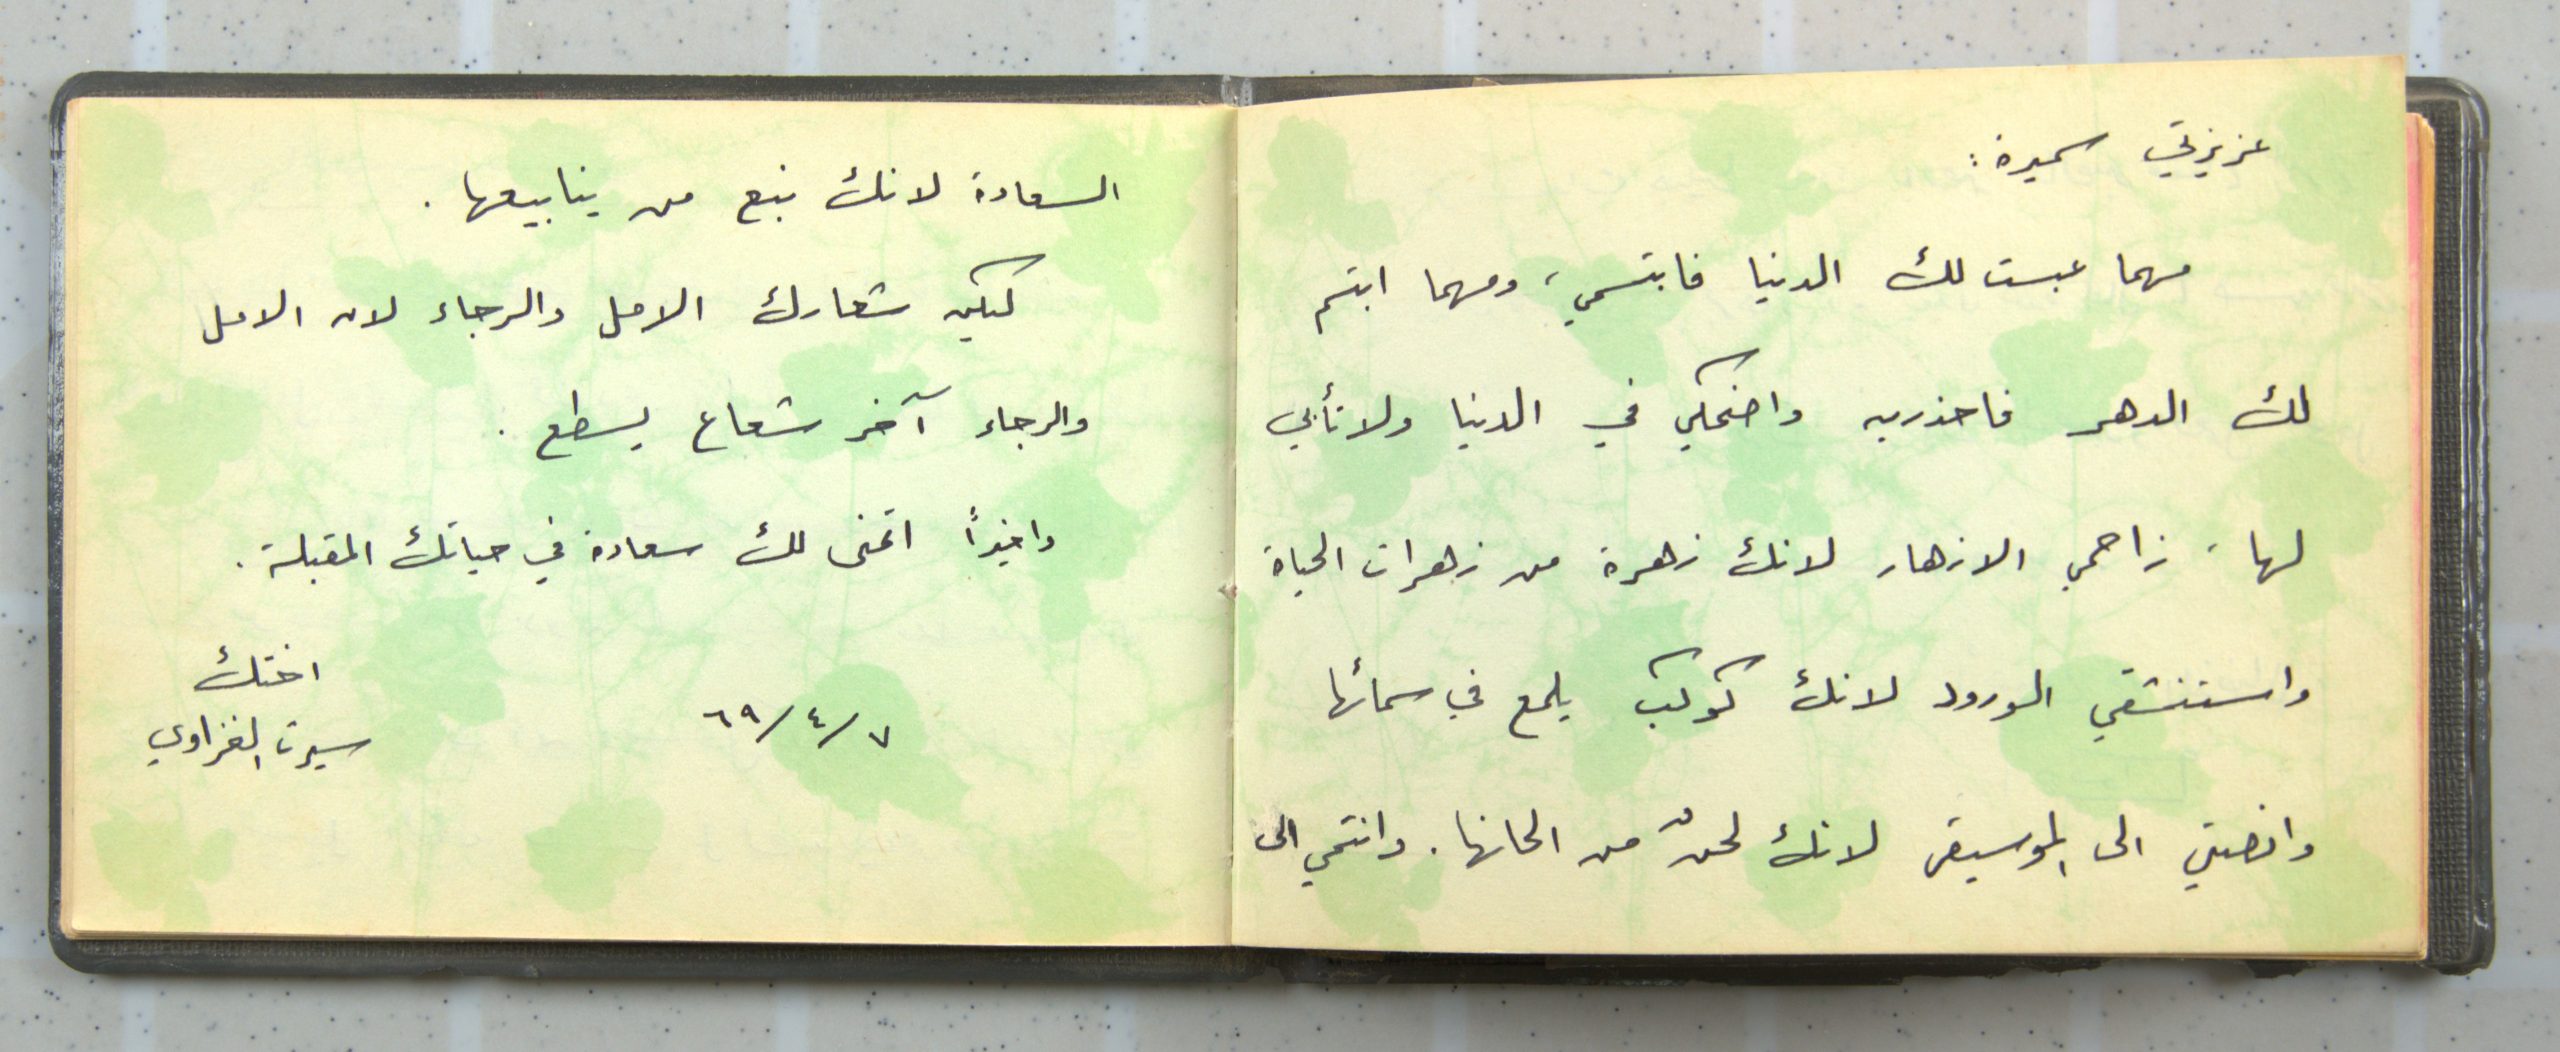 عزيزتي سميرة :
مهما عبست لك الدنيا فابتسمي ، ومهما ابتسم
لك الدهر فاحذريه واضحكي في الدنيا ولا تأبهي
لها . زاحمي الازهار لانك زهرة من زهرات الحياة
واستنشقي الورود لانك كوكب يلمع في سمائها
وانصتي الى الموسيقى لانك لحنٌ من الحانها . وانتمي الى
السعادة لانك نبع من ينابيعها .
ليكن شعارك الامل والرجاء لان الامل
والرجاء آخر شعاع يسطع .
واخيراً اتمنى لك سعادة في حياتك المقبلة .
اختك
٦٩/٤/٧
الغزاوي